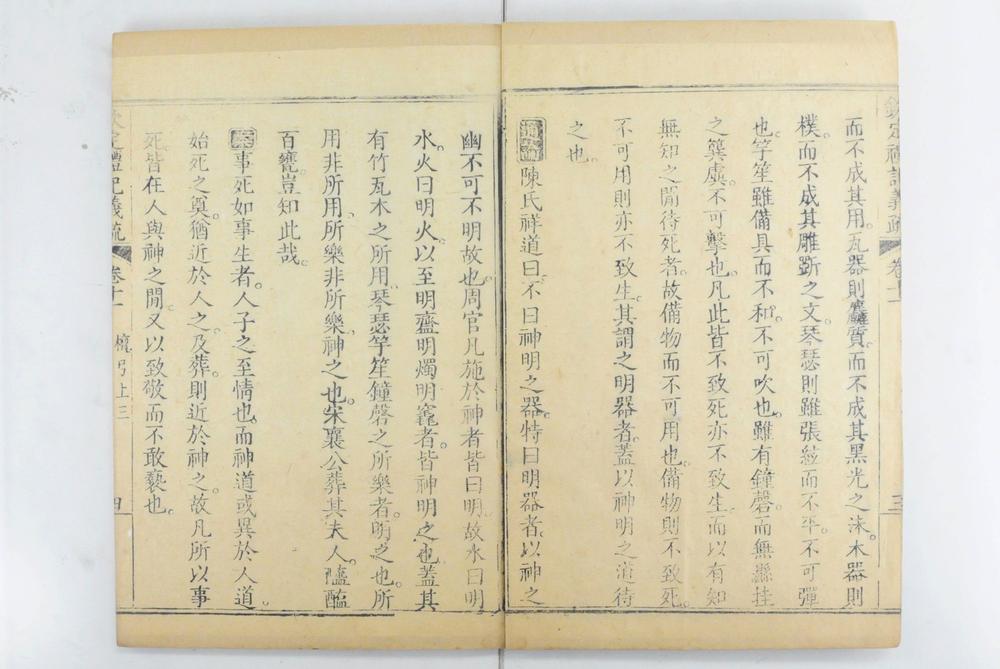 欽定禮記義疏 卷十一 三
而不成其用瓦器則麤質而不成其黑光之沬木器則
樸而不成其雕斲之文琴瑟則雖張絃而不平不可彈
也竽笙雖備具而不和不可吹也雖有鐘磬而無懸挂
之簨虡不可擊也凡此皆不致死亦不致生而以有知
無知之閒待死者故備物而不可用也備物則不致死
不可用則亦不致生其謂之明器者蓋以神明之道待
之也
陳氏祥道曰不曰神明之器特曰明器者以神之
幽不可不明故也周官凡施於神者皆曰明故水曰明
水火曰明火以至明齍明燭明竁者皆神明之也蓋其
有竹瓦木之所用琴瑟竽笙鐘磬之所樂者明之也所
用非所用所樂非所樂神之也宋襄公葬其夫人醯醢
百甕豈知此哉
案事死如事生者人子之至情也而神道或異於人道
始死之奠猶近於人之及葬則近於神之故凡所以事
死皆在人與神之閒又以致敬而不敢褻也
欽定禮記義疏 卷十一 檀弓上三 四